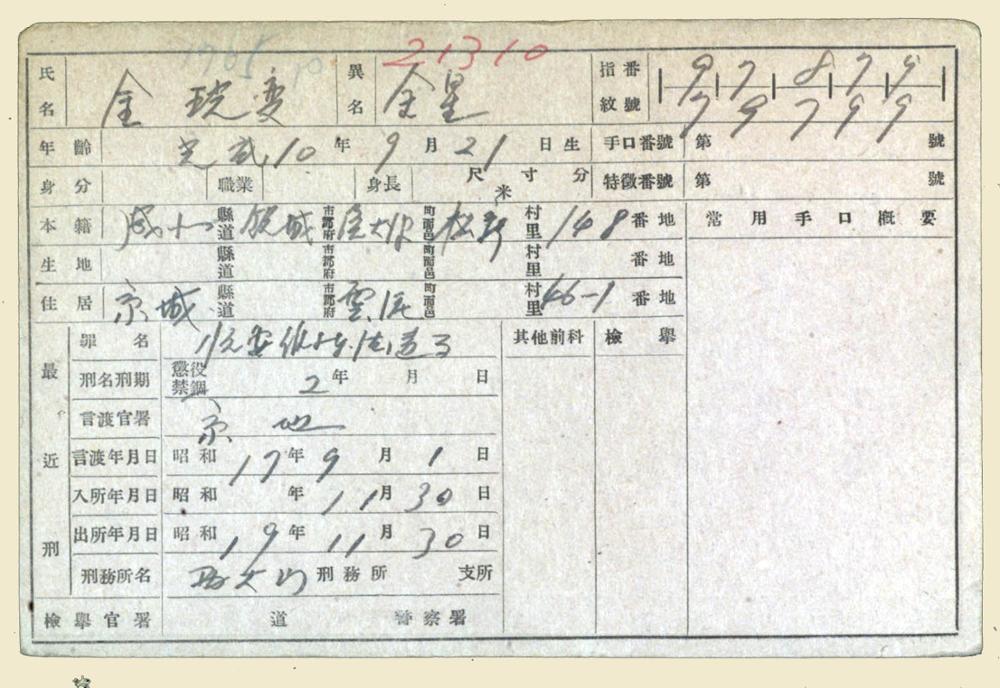 21310
氏名 金 珖燮 異名 金星 指紋番號 9 7 8 7 9
7 9 7 9 9
年齡 光武 10 年 9 月 21 日生 手口番號 第 號
身分 職業 身長 尺 寸 分 米 特徵番號 第 號
本籍 咸十 縣道 鏡城 市郡府 町面邑 松新 村里 148 番地 常用手口概要
生地 縣道 市郡府 町面邑 村里 番地
住居 京城 縣道 市郡府 雲泥 町面邑 村里 46-1 番地
最近刑
罪名 治安維持法違反 其他前科 檢擧
刑名刑期 懲役 禁錮 2 年 月 日
言渡官署 京地
言渡年月日 昭和 17 年 9 月 1 日
入所年月日 昭和 年 11 月 30 日
出所年月日 昭和 19 年 11 月 30 日
刑務所名 西大門 刑務所 支所
檢擧官署 道 警察署